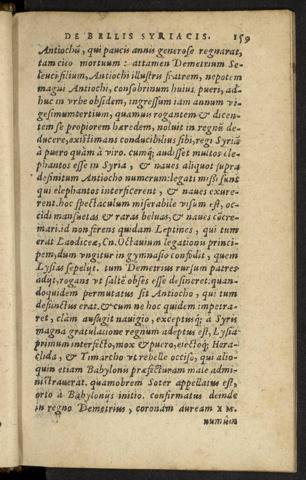 DE BELLIS SYRIACIS. 159
Antiochũ, qui paucis annis generose regnarat,
tam cito mortuum: attamen Demetrium Se-
leuci filium, Antiochi illustris fratrem, nepotem
magni Antiochi, consobrinum huius pueri, ad-
huc in vrbe obsidem, ingressum iam annum vi-
gesimumtertium, quamuis rogantem & dicen-
tem se propiorem hæredem, noluit in regnũ de-
ducere, existimans conducibilius sibi, regi Syriã
à puero quàm à viro. cumq; audisset multos ele-
phantos esse in Syria, & naues aliquot supra
definitum Antiocho numerum: legati missi sunt
qui elephantos interficerent, & naues exure-
rent. hoc spectaculum miserabile visum est, oc-
cidi mansuetas & raras beluas, & naues cõcre-
mari. id non ferens quidam Leptines, qui tum
erat Laodiceæ, Cn. Octauium legationis princi-
pem, dum vngitur in gymnasio confodit, quem
Lysias sepelijt. tum Demetrius rursum patres
adijt, rogans vt saltẽ obses esse desineret: quan-
doquidem permutatus sit Antiocho, qui tum
defunctus erat. & cum ne hoc quidem impetra-
ret, clàm aufugit nauigio, exceptusq; a Syris
magna gratulatione regnum adeptus est, Lysia
primum interfecto, mox & puero, eiectoq; Hera-
clida, & Timarcho vt rebelle occiso, qui alio-
quin etiam Babylonis præfecturam male admi-
nistrauerat. quamobrem Soter appellatus est,
orto à Babylonijs initio. confirmatus deinde
in regno Demetrius, coronam auream XM.
numûm